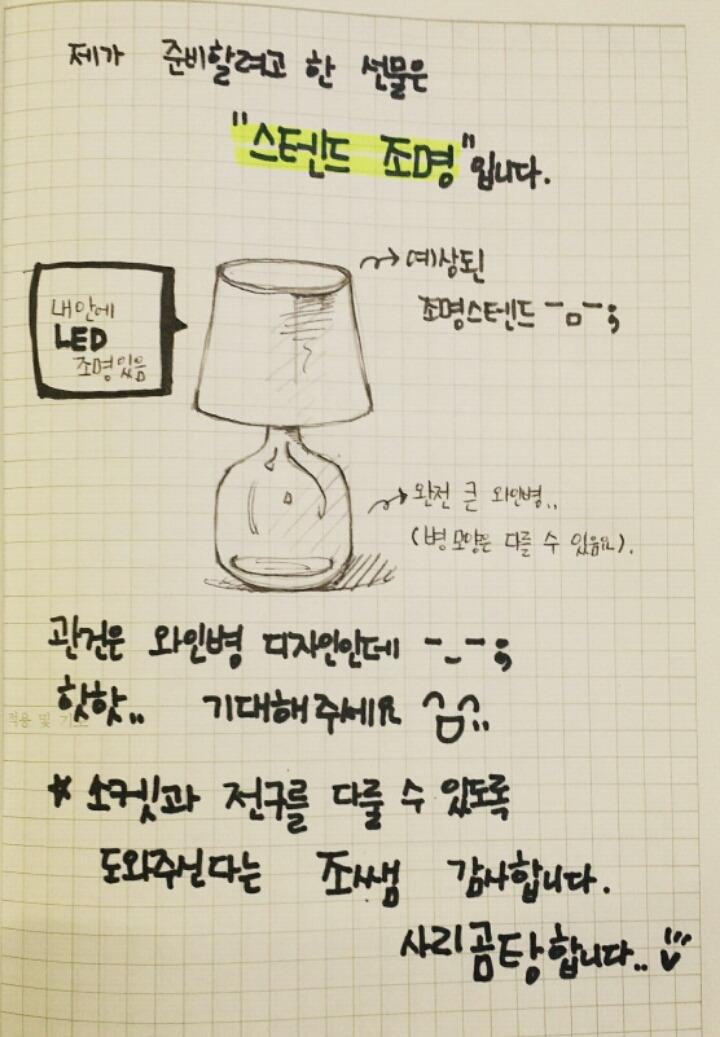 제가 준비할려고 한 선물은
"스텐드 조명"입니다.
예상된
조명스텐드 ㅡㅁㅡ;
내 안에
LED
조명있음
완전 큰 와인병..
(병 모양은 다를 수 있음요).
관건은 와인병 디자인인데 -_-;
핫핫.. 기대해주세요 ^ㅁ^..
적용 및 기
* 소켓과 전구를 다룰 수 있도록
도와주신다는 조쌤 감사합니다.
사리곰탕합니다..